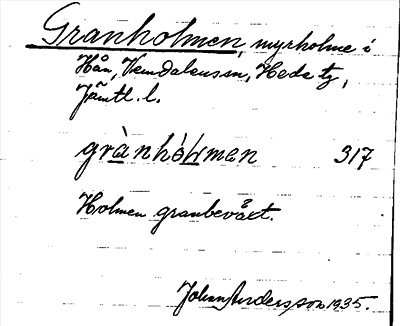 Granholmen, myrholme i
Hån, Vemdalens sn, Hede tg,
Jämtl. l.
grànhòɫmen 317
Holmen granbevåxt.
Johan Andersson 1935.